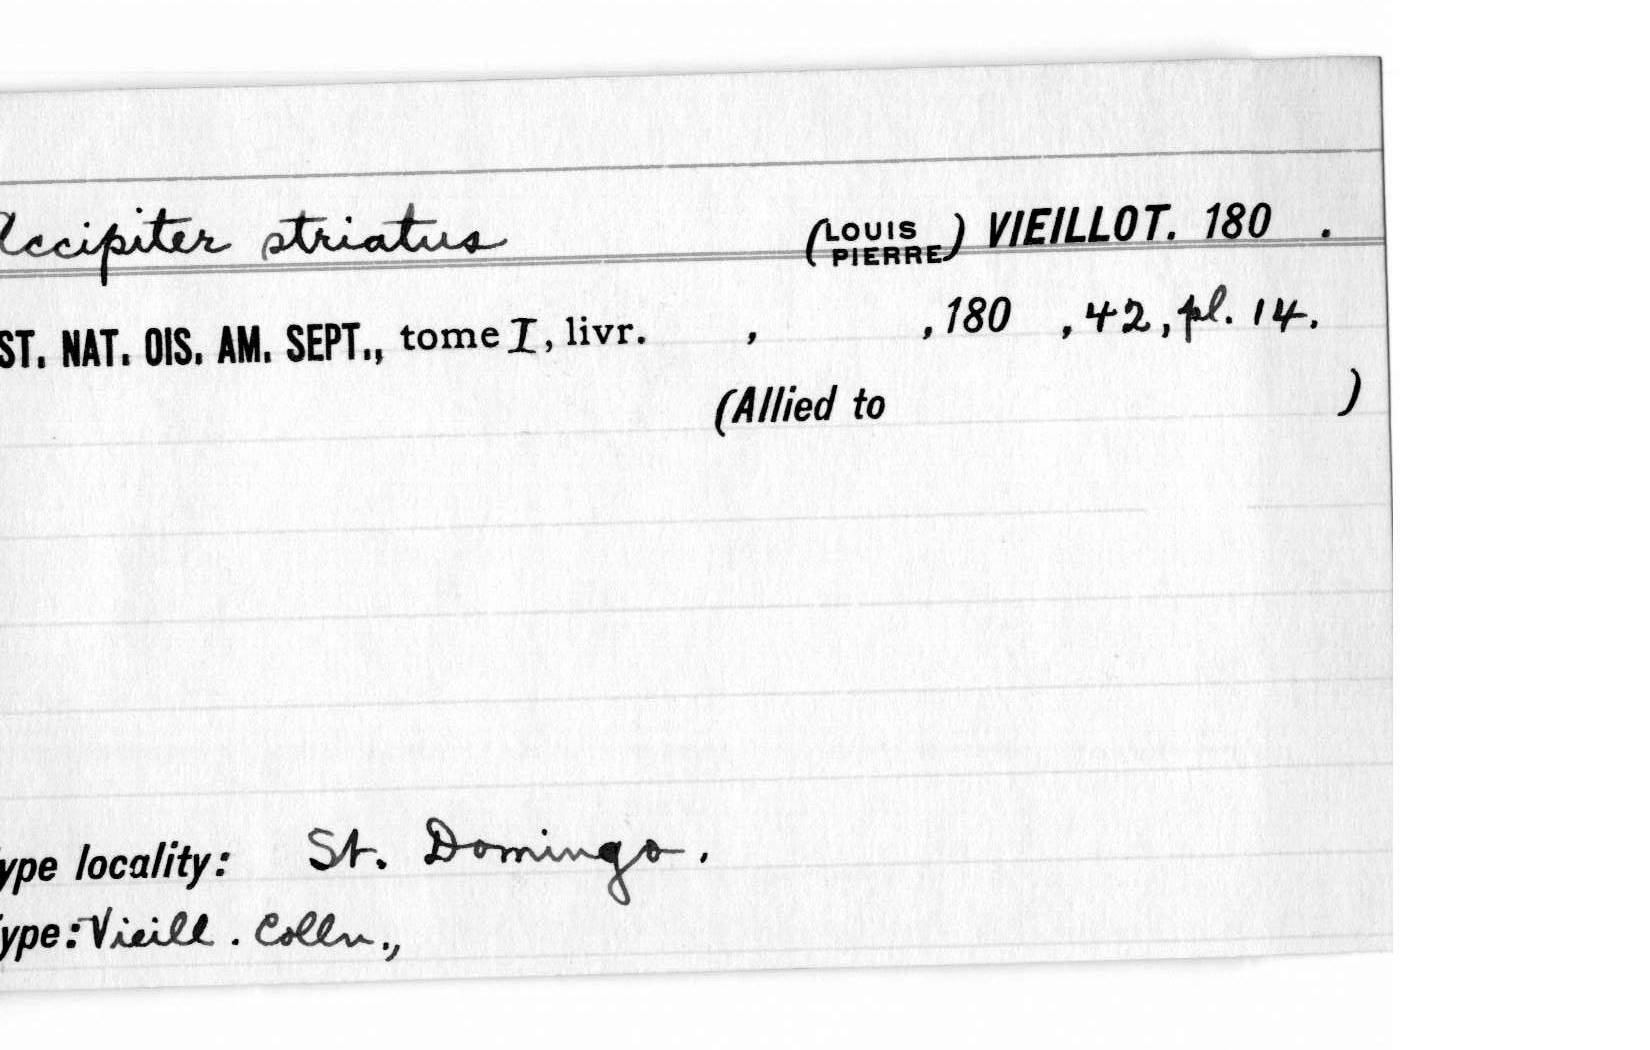 Accipiter striatus (LOUIS PIERRE) VIEILLOT. 180 .
ST. NAT. OIS. AM. SEPT., tome I, livr. , , 180 , 42, pl. 14.
(Allied to )
ype locality: St. Domingo.
ype: Vieill. Colln.,